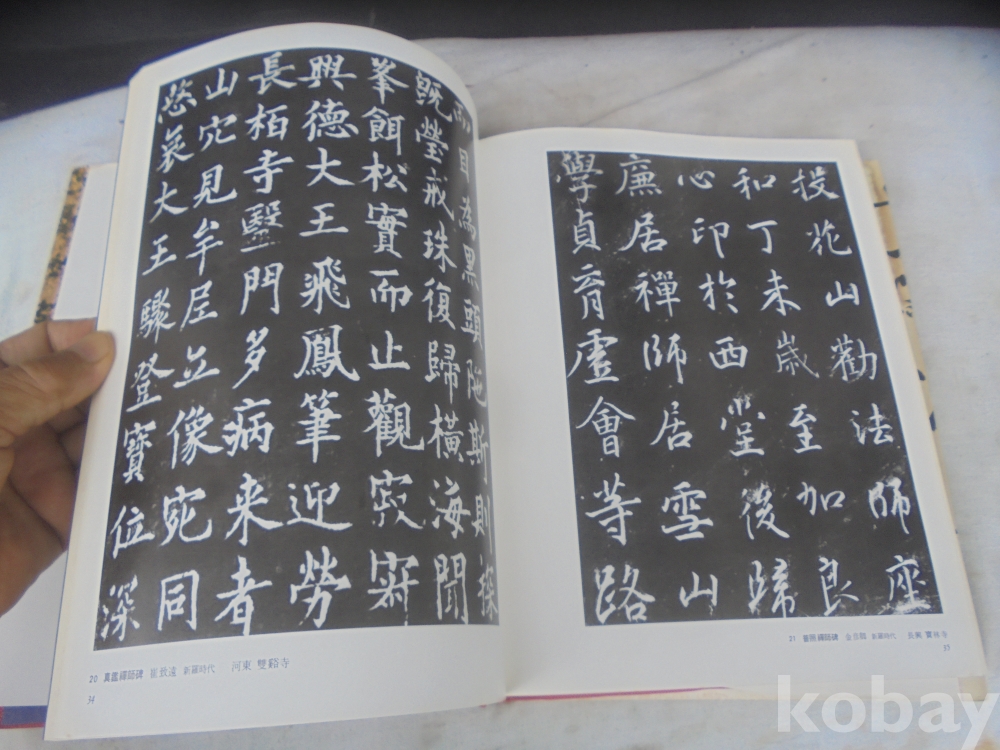 而目為黑頭陁斯則探
既瑩戒珠復歸橫海聞
峯餌松實而止觀寂寂
興德大王飛鳳筆迎勞
長栢寺毉門多病来者
山穴見牟尼立像宛同
慈哀大王驟登寶位深
20 真鑑禪師碑 崔致遠 新羅時代 河東 雙谿寺
34
投花山勸法師座
和丁未歲至加良
心印於西堂後歸
廉居禪師居雪山
學貞育虛會等路
21 普照禪師碑 新羅時代 長興 寶林寺
35
kobay